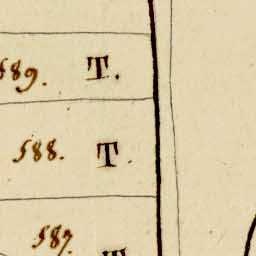 589. T.
588. T.
587.